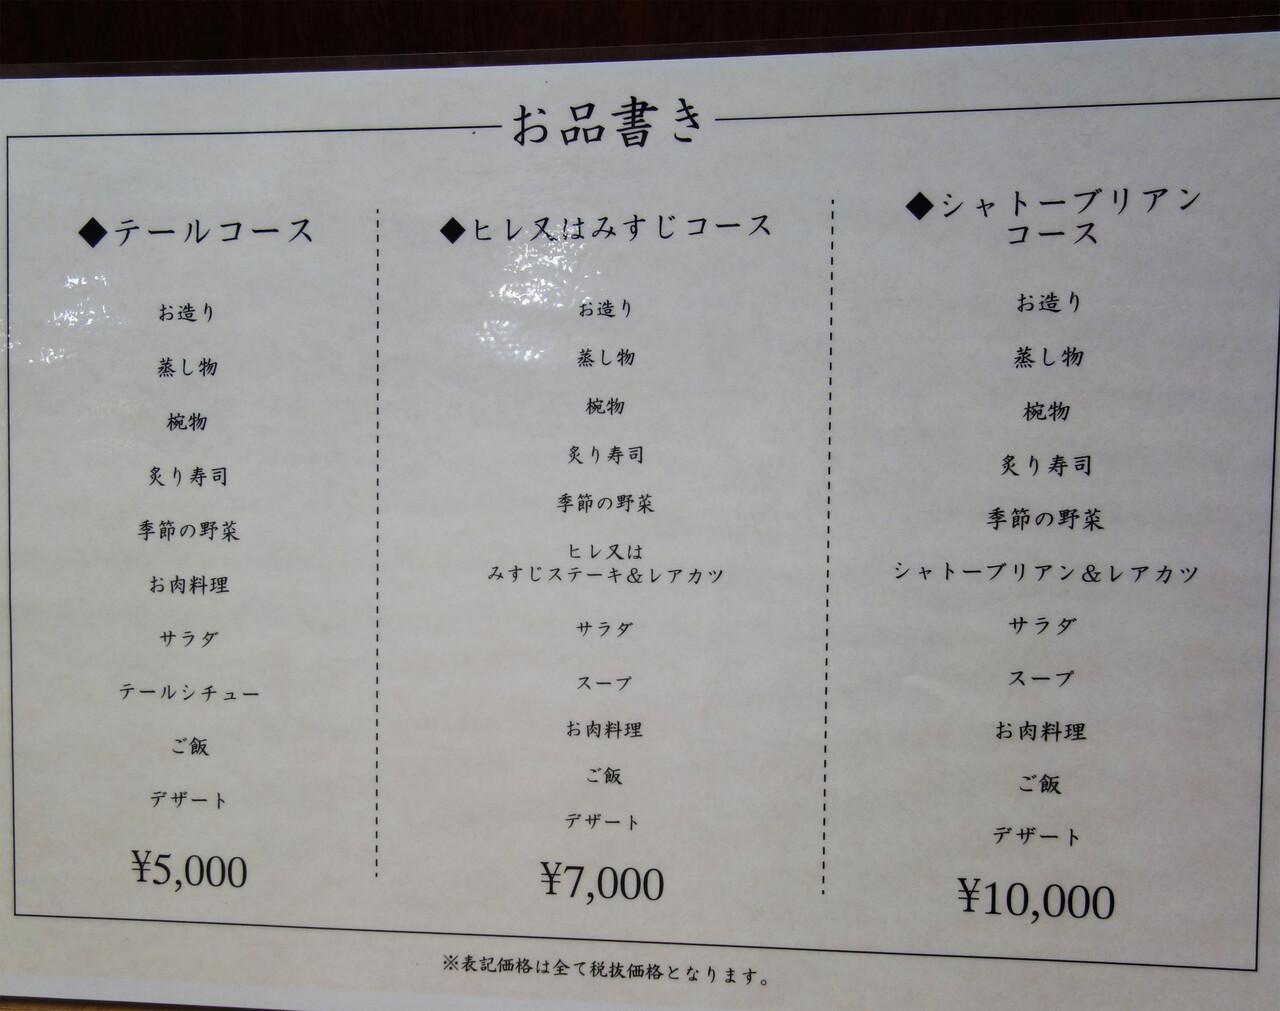 お品書き
◆テールコース
お造り
蒸し物
椀物
炙り寿司
季節の野菜
お肉料理
サラダ
テールシチュー
ご飯
デザート
¥5,000
◆ヒレ又はみすじコース
お造り
蒸し物
椀物
炙り寿司
季節の野菜
ヒレ又は
みすじステーキ&レアカツ
サラダ
スープ
お肉料理
ご飯
デザート
¥7,000
◆シャトーブリアン
コース
お造り
蒸し物
椀物
炙り寿司
季節の野菜
シャトーブリアン&レアカツ
サラダ
スープ
お肉料理
ご飯
デザート
¥10,000
※表記価格は全て税抜価格となります。